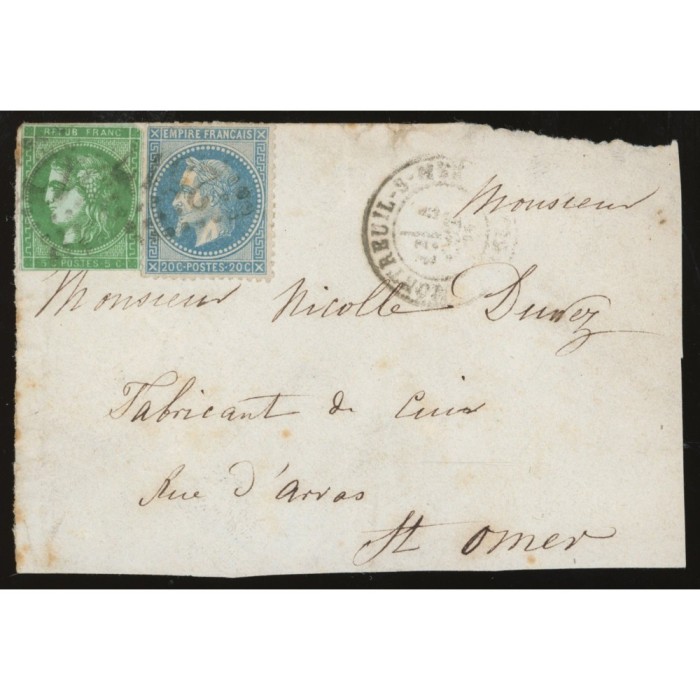 REPUB FRANC
POSTES 5 C
EMPIRE FRANÇAIS
20C POSTES 20C
MONTREUIL-S-MER
Monsieur
Monsieur Nicolle Duvez
Fabricant de Cuir
Rue d'arras
St omer